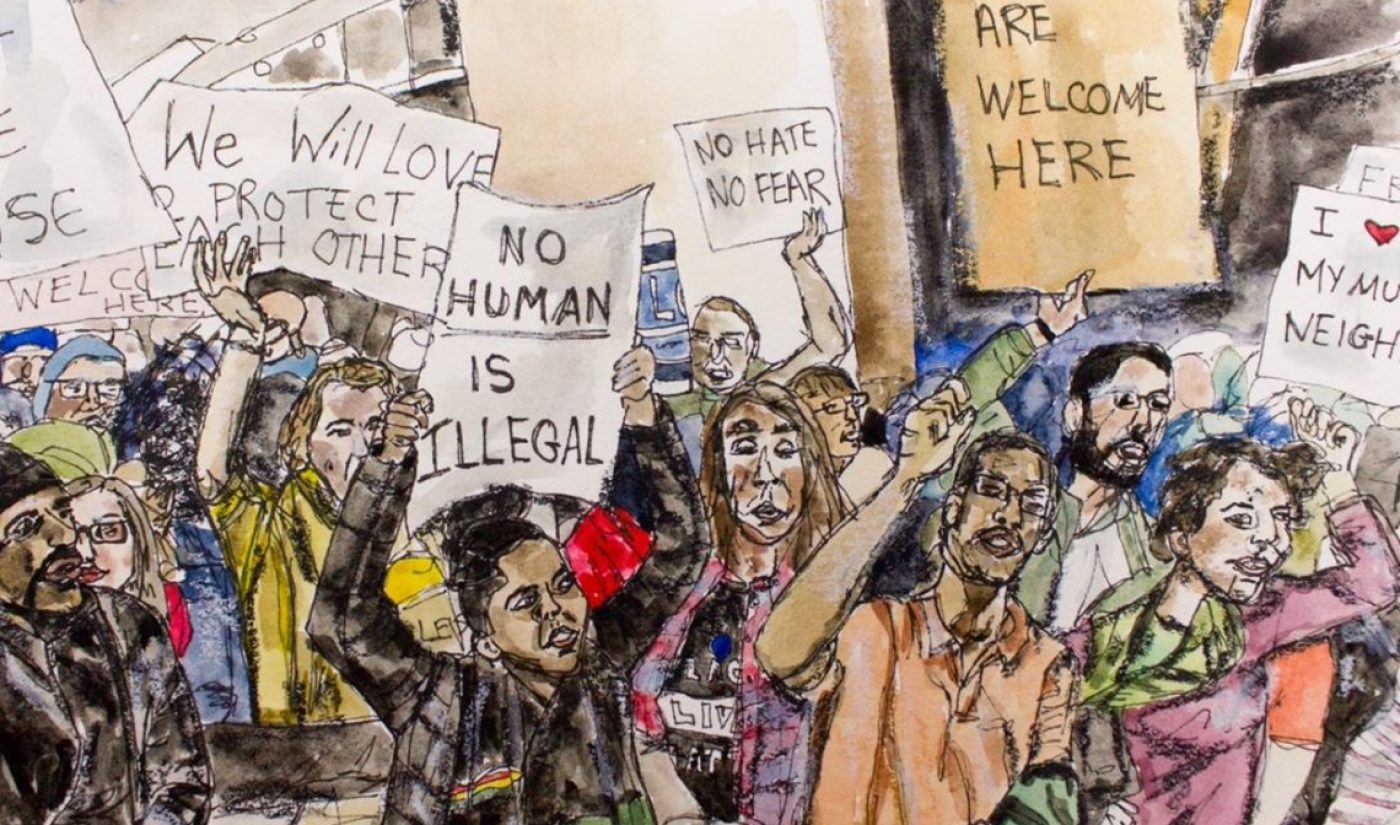 SE
We Will LOVE
& PROTECT
EACH OTHER
WELCO
HERE
NO
HUMAN
IS
ILLEGAL
NO HATE
NO FEAR
ARE
WELCOME
HERE
FE
I ♥
MY MU
NEIGH
LIV